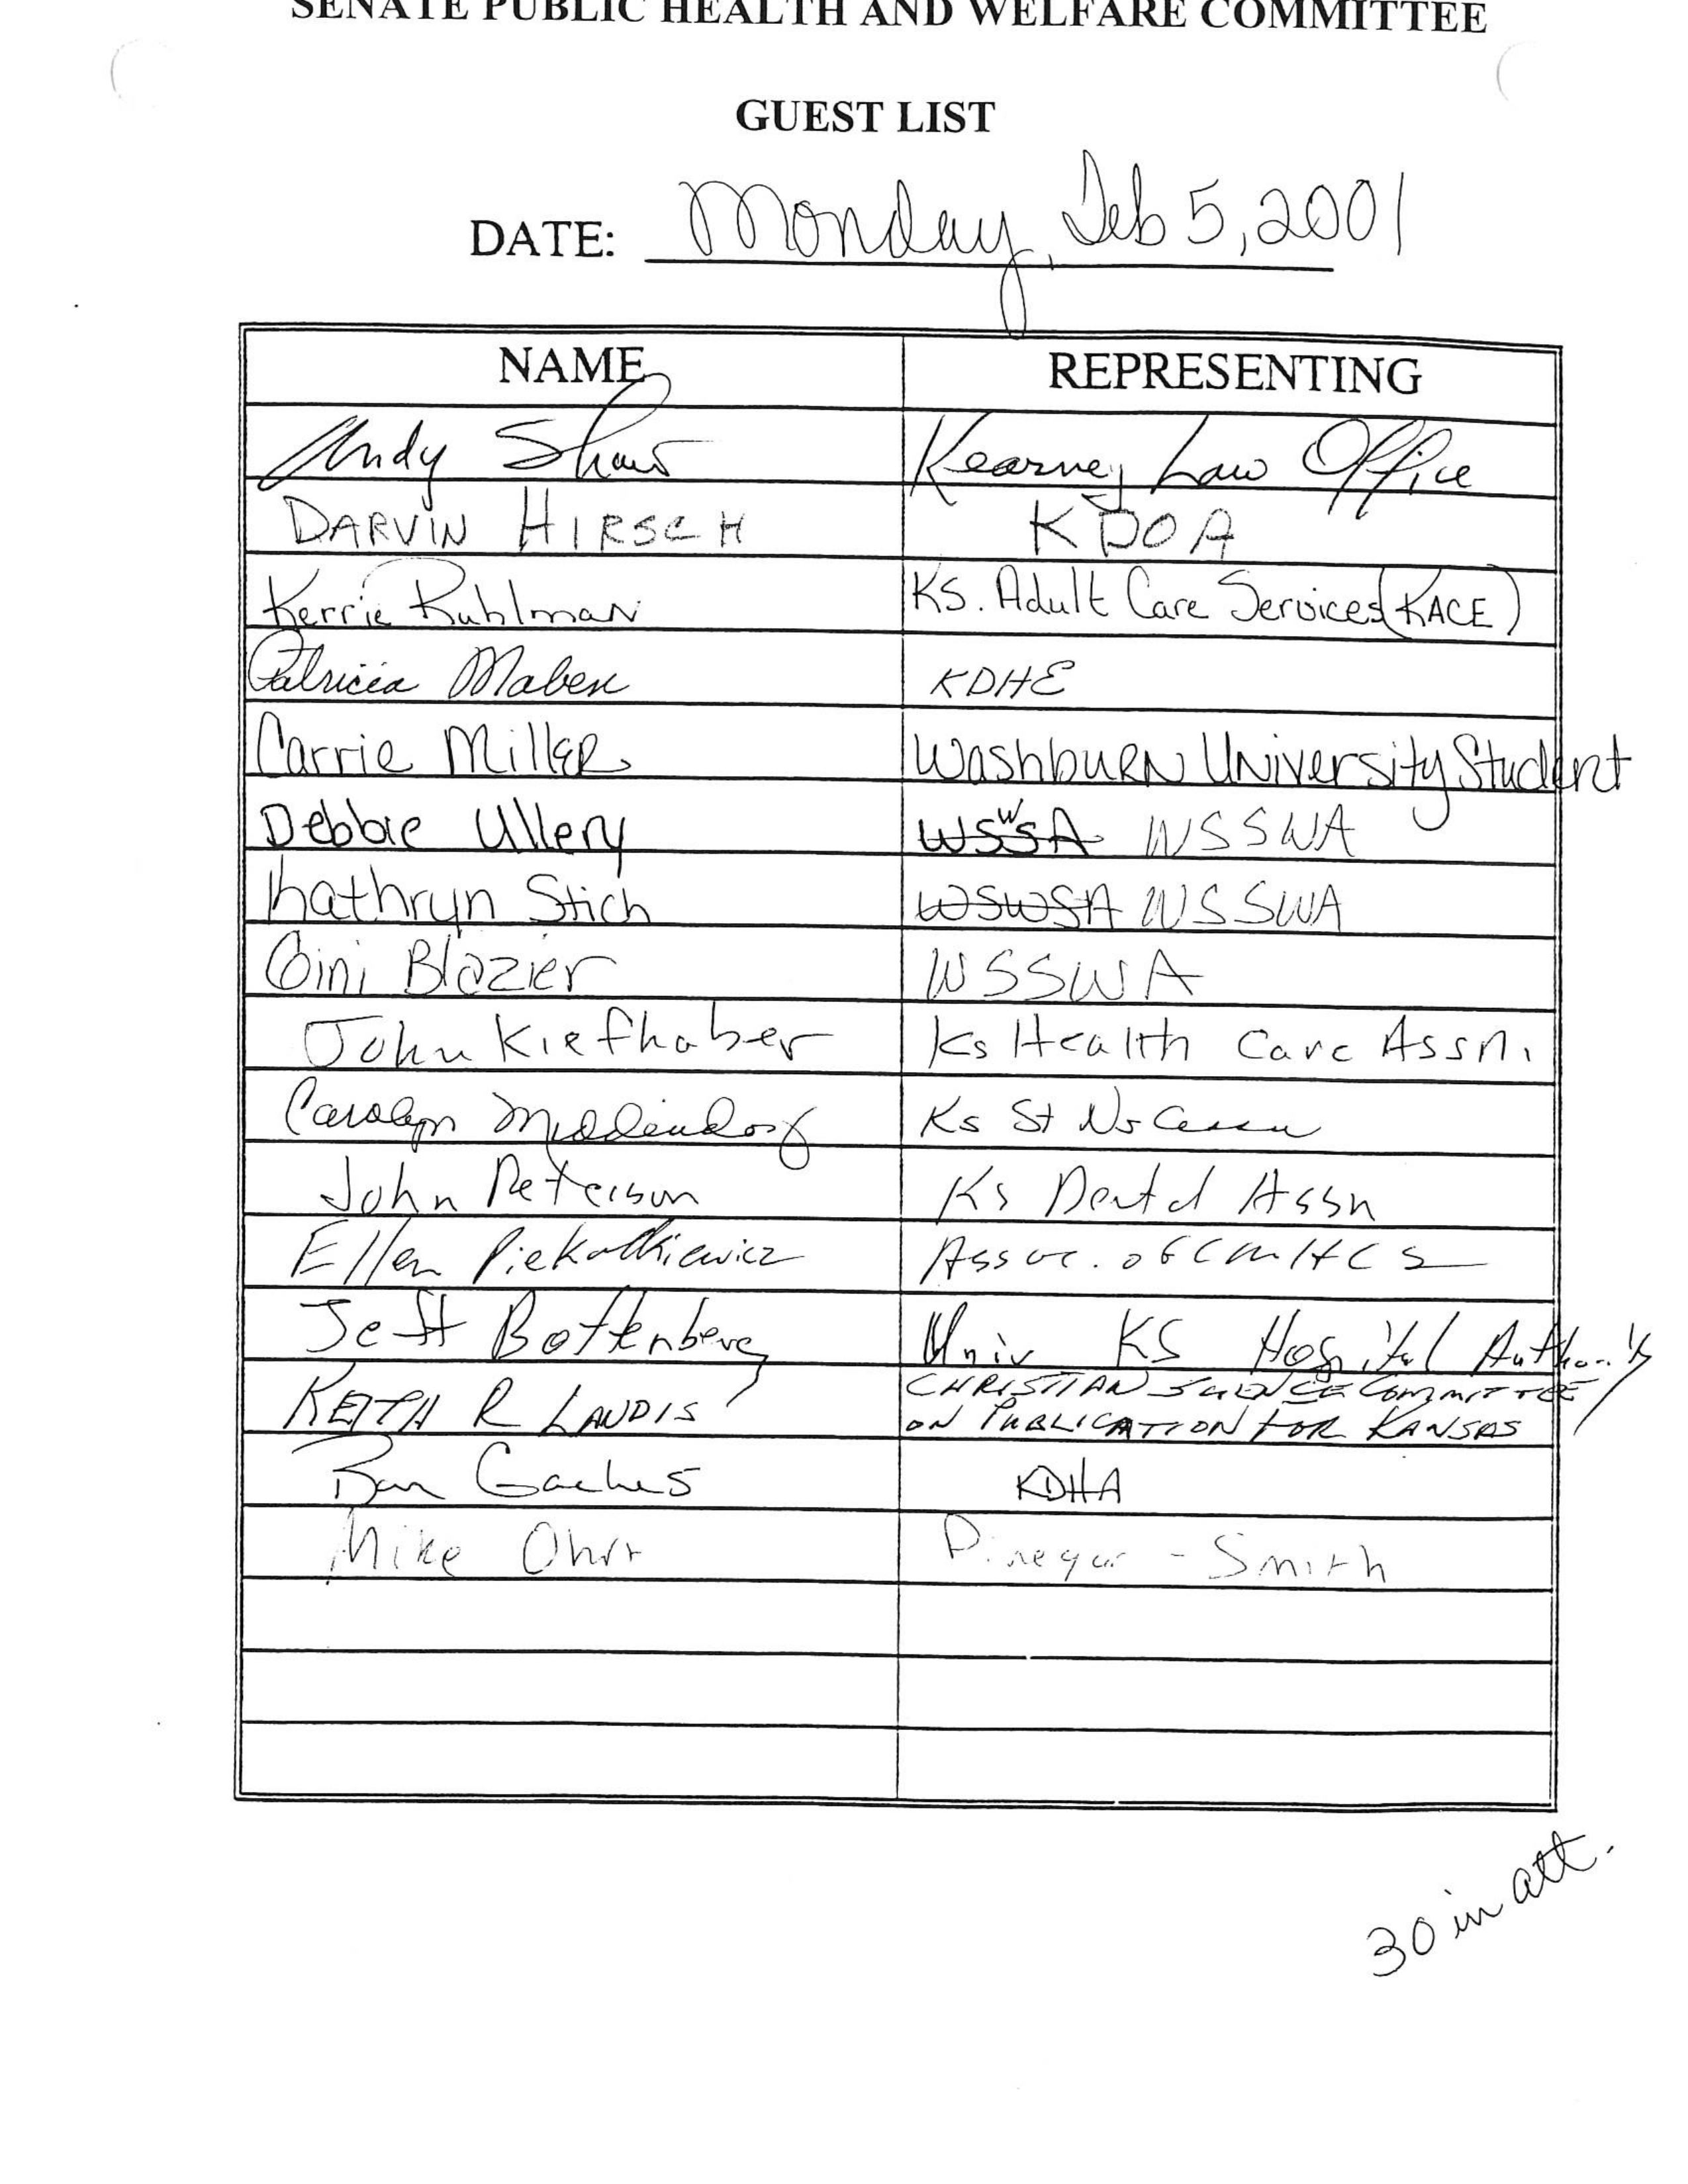 SENATE PUBLIC HEALTH AND WELFARE COMMITTEE
GUEST LIST
DATE: Monday, Feb 5, 2001
NAME REPRESENTING
Andy Shaw Kearney Law Office
DARVIN HIRSCH KDOA
Kerrie Ruhlman KS. Adult Care Services (KACE)
Patricia Maben KDHE
Carrie Miller Washburn University Student
Debbie Ullery WSWSA WSSWA
Kathryn Stich WSWSA WSSWA
Gini Blazier WSSWA
John Kiefhaber Ks Health Care Assn.
Carolyn Middendorf Ks St Ns
John Peterson Ks Dental Assn
Ellen Piekalkiewicz Assoc. of CMHCs
Jeff Bottenberg Univ KS Hospital Authority
KEITH R LANDIS CHRISTIAN SCIENCE COMMITTEE
ON PUBLICATION FOR KANSAS
Gaches KDHA
Mike Pinegar-Smith
30 in att.